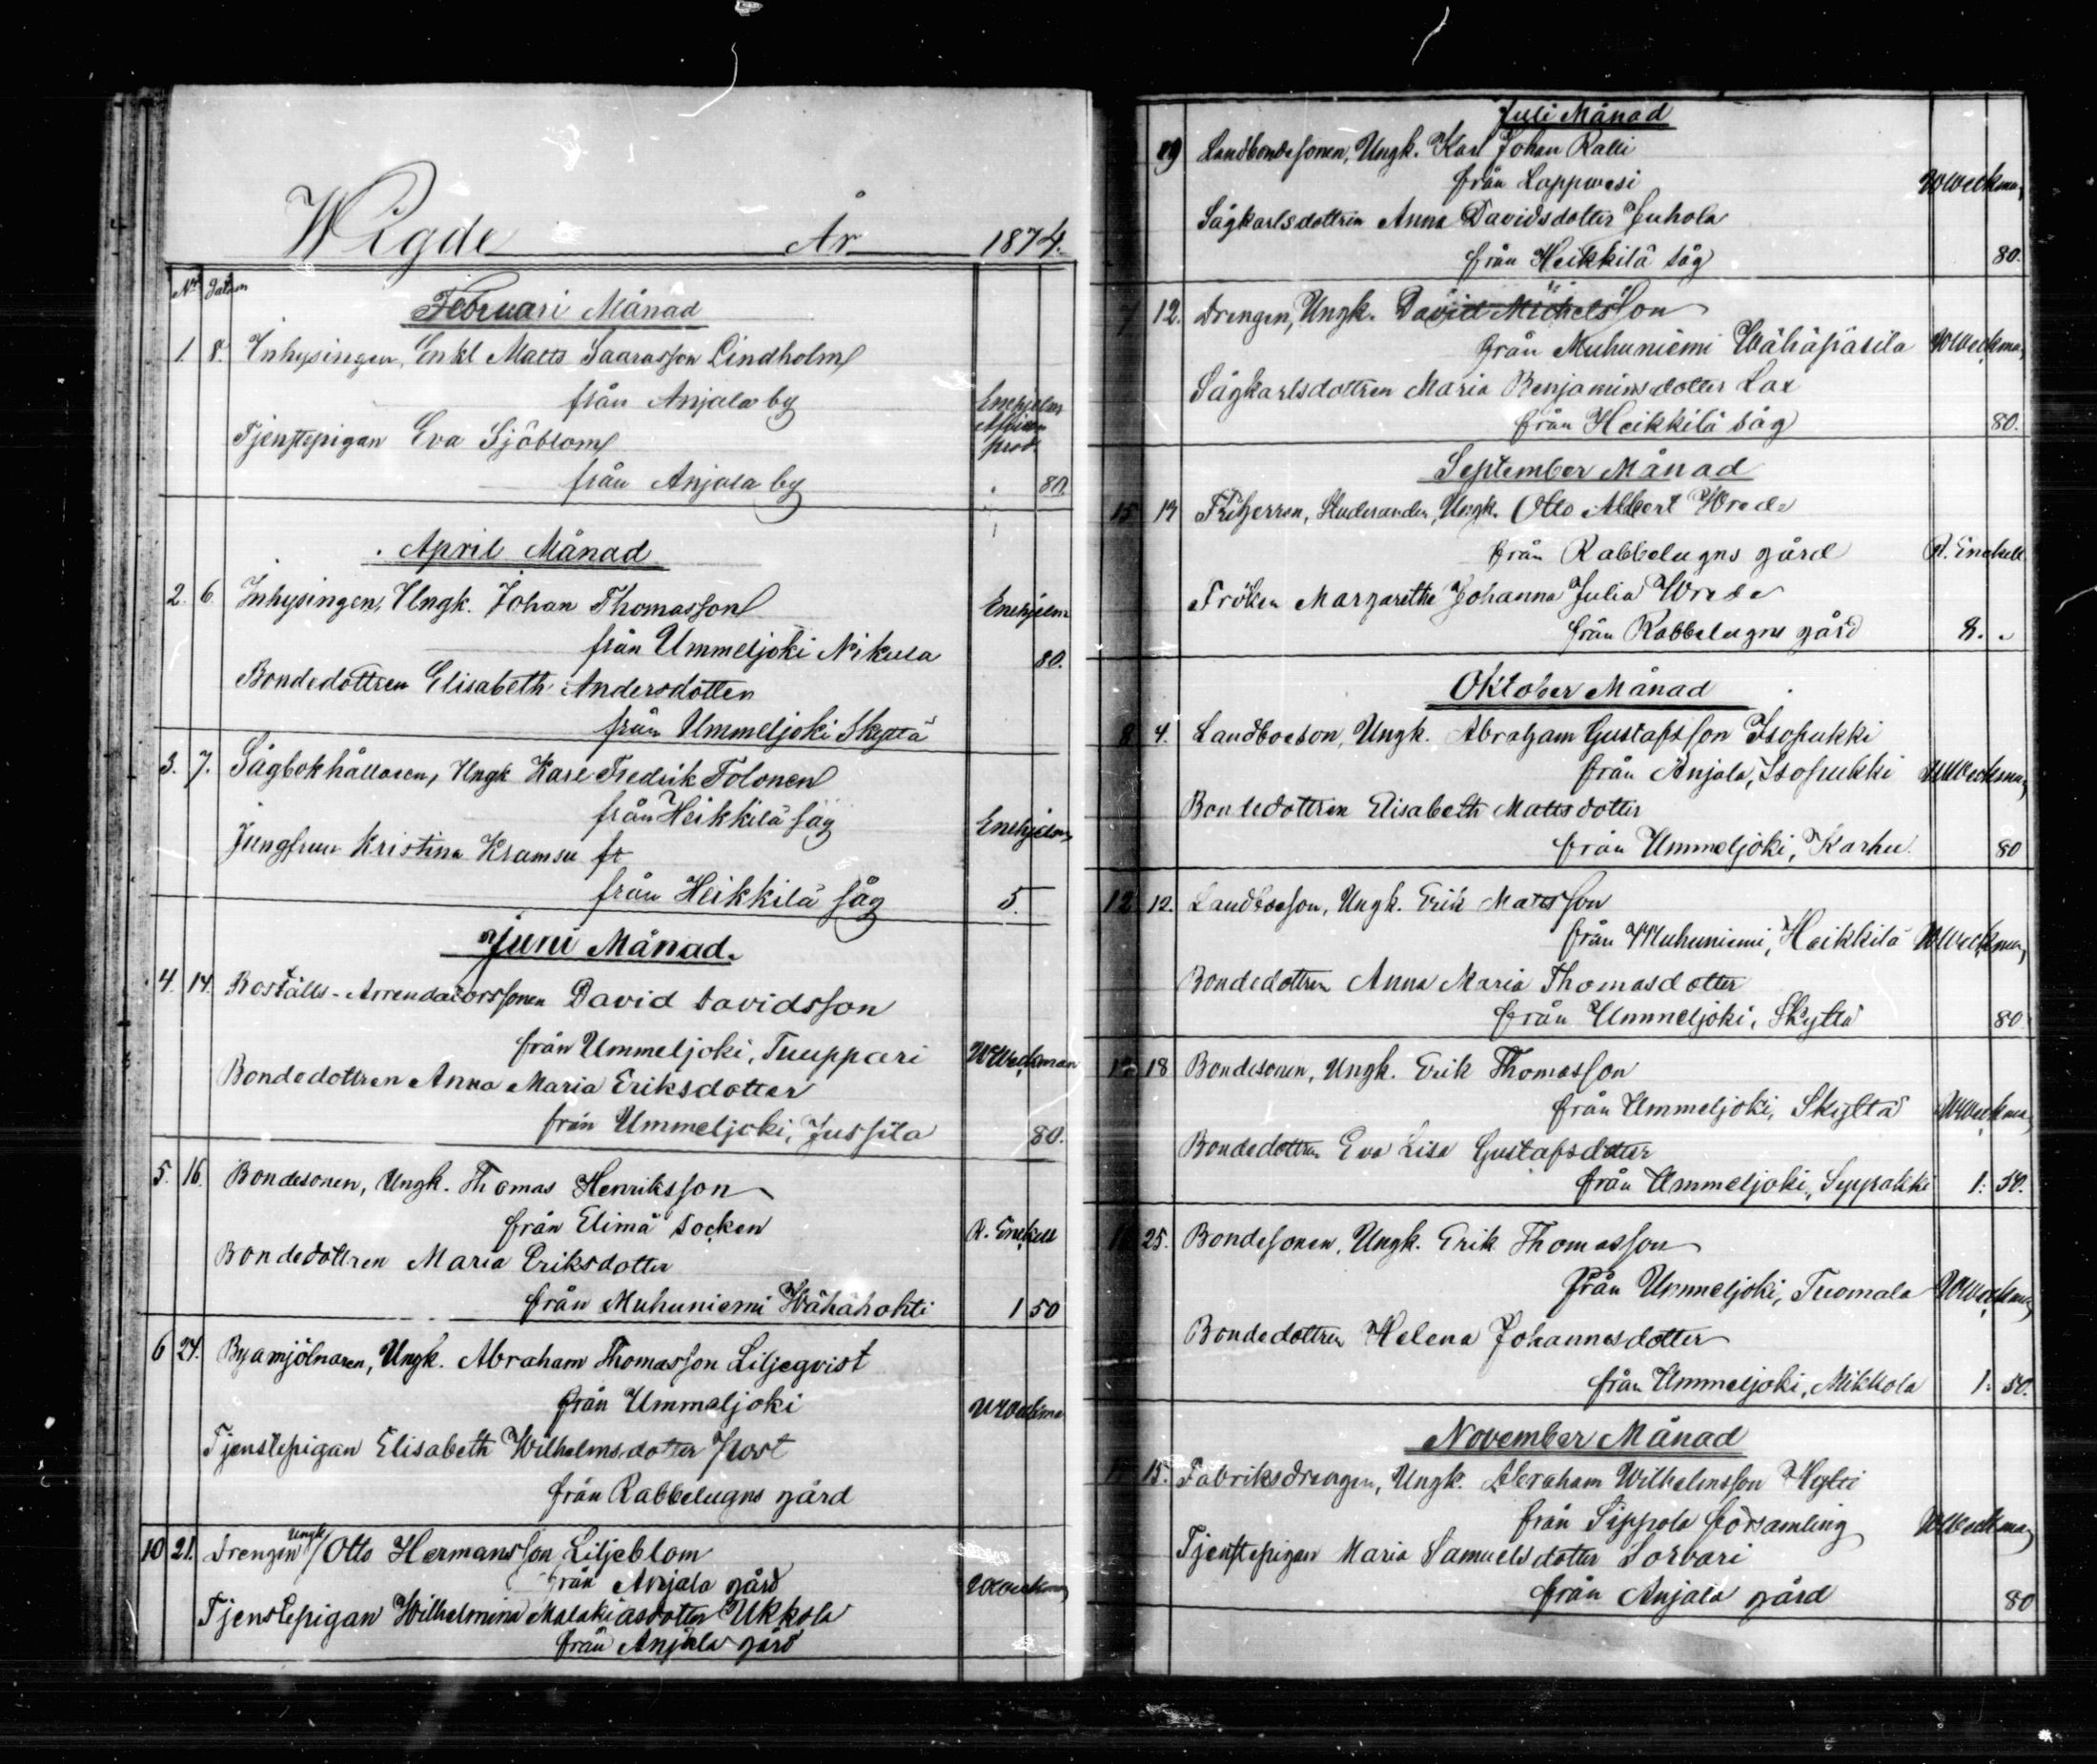 Wigde År 1874.
No Datum
Februari Månad
1. 8. Inhysingen, Enkl Matts Saarasson Lindholm
från Anjala by
Enehjelm
Tjenstepigan Eva Sjöblom
från Anjala by 80.
April Månad
2. 6. Inhysingen, Ungk. Johan Thomasson Enehjelm
från Ummeljoki Nikula 80.
Bondedottren Elisabeth Andersdotter
från Ummeljoki Skyttä
3. 7. Sågbokhållaren, Ungk Karl Fredrik Tolonen
från Heikkilä såg Enehjelm
Jungfrun Kristina Kramsu fr
från Heikkilä såg 5.
Juni Månad.
4. 14. Boställs-Arrendatorssonen David Davidsson
från Ummeljoki, Tuuppari WWeckman
Bondedottren Anna Maria Eriksdotter
från Ummeljoki, Jussila 80.
5. 16. Bondesonen, Ungk. Thomas Henriksson
från Elimä socken R. Enekell
Bondedottren Maria Eriksdotter
från Muhuniemi Wähähohti 1 50
6 24. Byamjölnaren, Ungk. Abraham Thomasson Liljeqvist
från Ummeljoki WWeckman
Tjenstepigan Elisabeth Wilhelmsdotter Frost
från Rabbelugns gård
10 21. Drengen Ungk/ Otto Hermansson Liljeblom
från Anjala gård WWeckman
Tjenstepigan Wilhelmina Malakiasdotter Ukkola
från Anjala gård
Juli Månad
19 Landbondesonen, Ungk. Karl Johan Ralli
från Lappwesi WWeckman
Sågkarlsdottren Anna Davidsdotter Juhola
från Heikkilä såg 80.
7 12. Drengen, Ungk. David Michelsson
från Muhuniemi Wähäpätilä WWeckman
Sågkarlsdottren Maria Benjaminsdotter Lax
från Heikkilä såg 80.
September Månad
15 19 Friherren, Studeranden, Ungk. Otto Albert Wrede
från Rabbelugns gård R. Enekell
Fröken Margaretha Johanna Julia Wrede
från Rabbelugns gård 8. "
Oktober Månad
8 4. Landboeson, Ungk. Abraham Gustafsson Isopukki
från Anjala, Isopukki WWeckman
Bondedottren Elisabeth Mattsdotter
från Ummeljoki, Karhu 80
12 12. Landboeson, Ungk. Erik Mattsson
från Muhuniemi, Heikkilä WWeckman
Bondedottren Anna Maria Thomasdotter
från Ummeljoki, Skyttä 80
18 Bondesonen, Ungk. Erik Thomasson
från Ummeljoki, Skyttä WWeckman
Bondedottren Eva Lisa Gustafsdotter
från Ummeljoki, Seppakki 1. 50.
25. Bondesonen, Ungk. Erik Thomasson
från Ummeljoki, Tuomala WWeckman
Bondedottren Helena Johannesdotter
från Ummeljoki, Mikkola 1. 50.
November Månad
15. Fabriksdrengen, Ungk. Abraham Wilhelmsson Hyteri
från Sippola församling WWeckman
Tjenstepigan Maria Samuelsdotter Sorvari
från Anjala gård 80